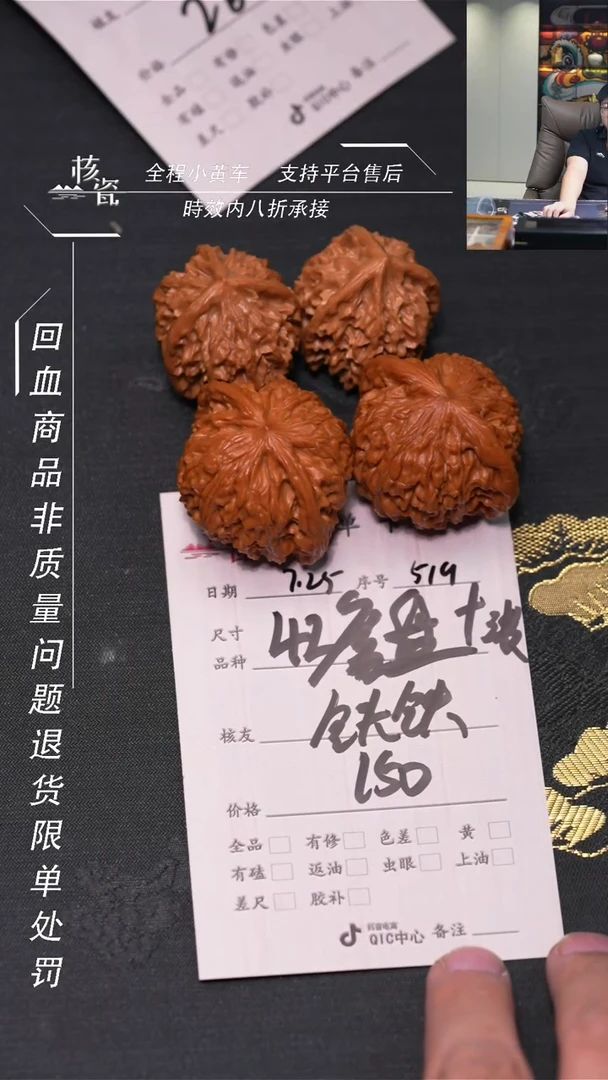 核瓷
全程小黄车 支持平台售后
時效内八折承接
回血商品非质量问题退货限单处罚
价格
全品 有修 色差
有磕 返油 虫眼 上油
差尺 胶补
QIC中心 备注
日期 7.25 序号 519
尺寸
品种 42磨盘+
核友 铁铁
150
价格
全品 有修 色差 黄
有磕 返油 虫眼 上油
差尺 胶补
抖音电商
QIC中心 备注